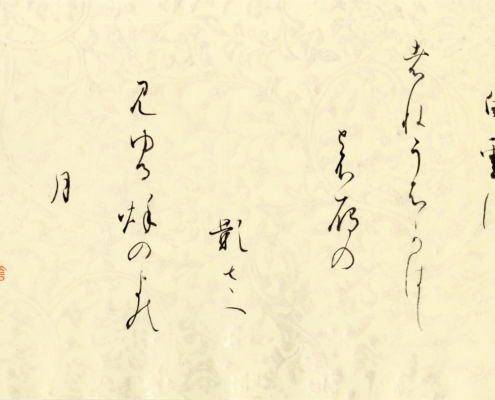 白雲に
はねうちかはし
とふ雁の
影さへ
見ゆる秋のよの
月